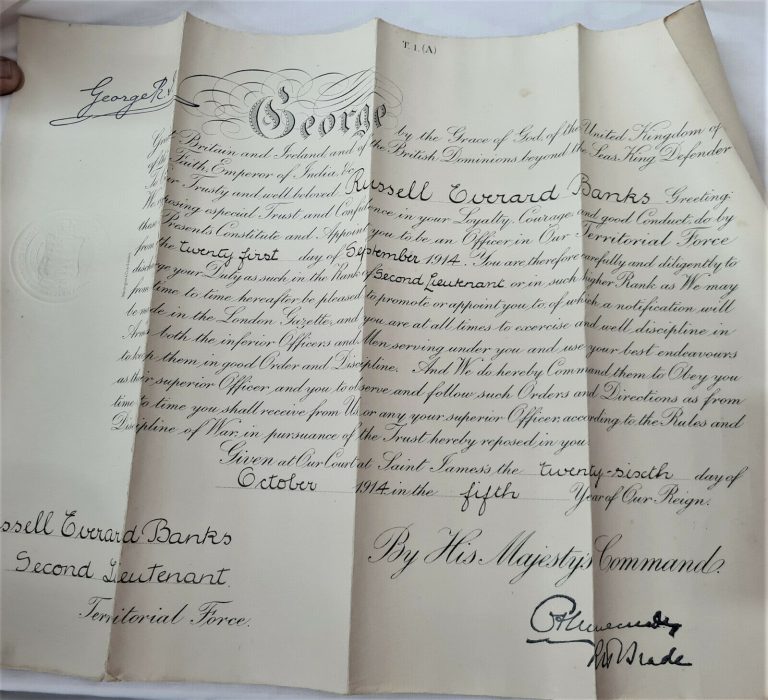 T. 1. (A)
George R.I.
George
by the Grace of God, of the United Kingdom of
Great Britain and Ireland and of the British Dominions beyond the Seas, King Defender
of the Faith, Emperor of India, &c.
To Our Trusty and well beloved Russell Everard Banks Greeting:
We, reposing especial Trust and Confidence in your Loyalty, Courage, and good Conduct, do by
these Presents Constitute and Appoint you to be an Officer in Our Territorial Force
from the twenty first day of September 1914. You are therefore carefully and diligently to
discharge your Duty as such in the Rank of Second Lieutenant or in such higher Rank as We may
from time to time hereafter be pleased to promote or appoint you to, of which a notification will
be made in the London Gazette, and you are at all times to exercise and well discipline in
Arms both the inferior Officers and Men serving under you and use your best endeavours
to keep them in good Order and Discipline. And We do hereby Command them to Obey you
as their superior Officer, and you to observe and follow such Orders and Directions as from
time to time you shall receive from Us, or any your superior Officer, according to the Rules and
Discipline of War, in pursuance of the Trust hereby reposed in you.
Given at Our Court, at Saint James's the twenty-sixth day of
October 1914 in the fifth Year of Our Reign.
By His Majesty's Command.
ssell Everard Banks
Second Lieutenant
Territorial Force.